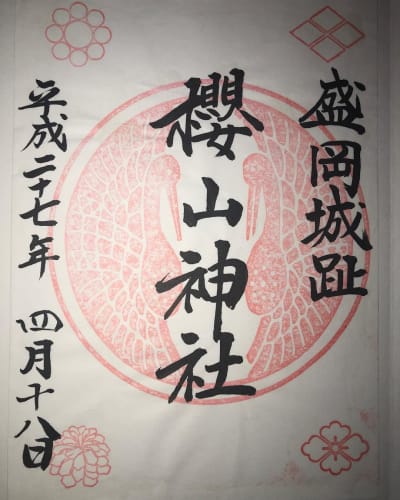 盛岡城趾
櫻山神社
平成二十七年 四月十八日